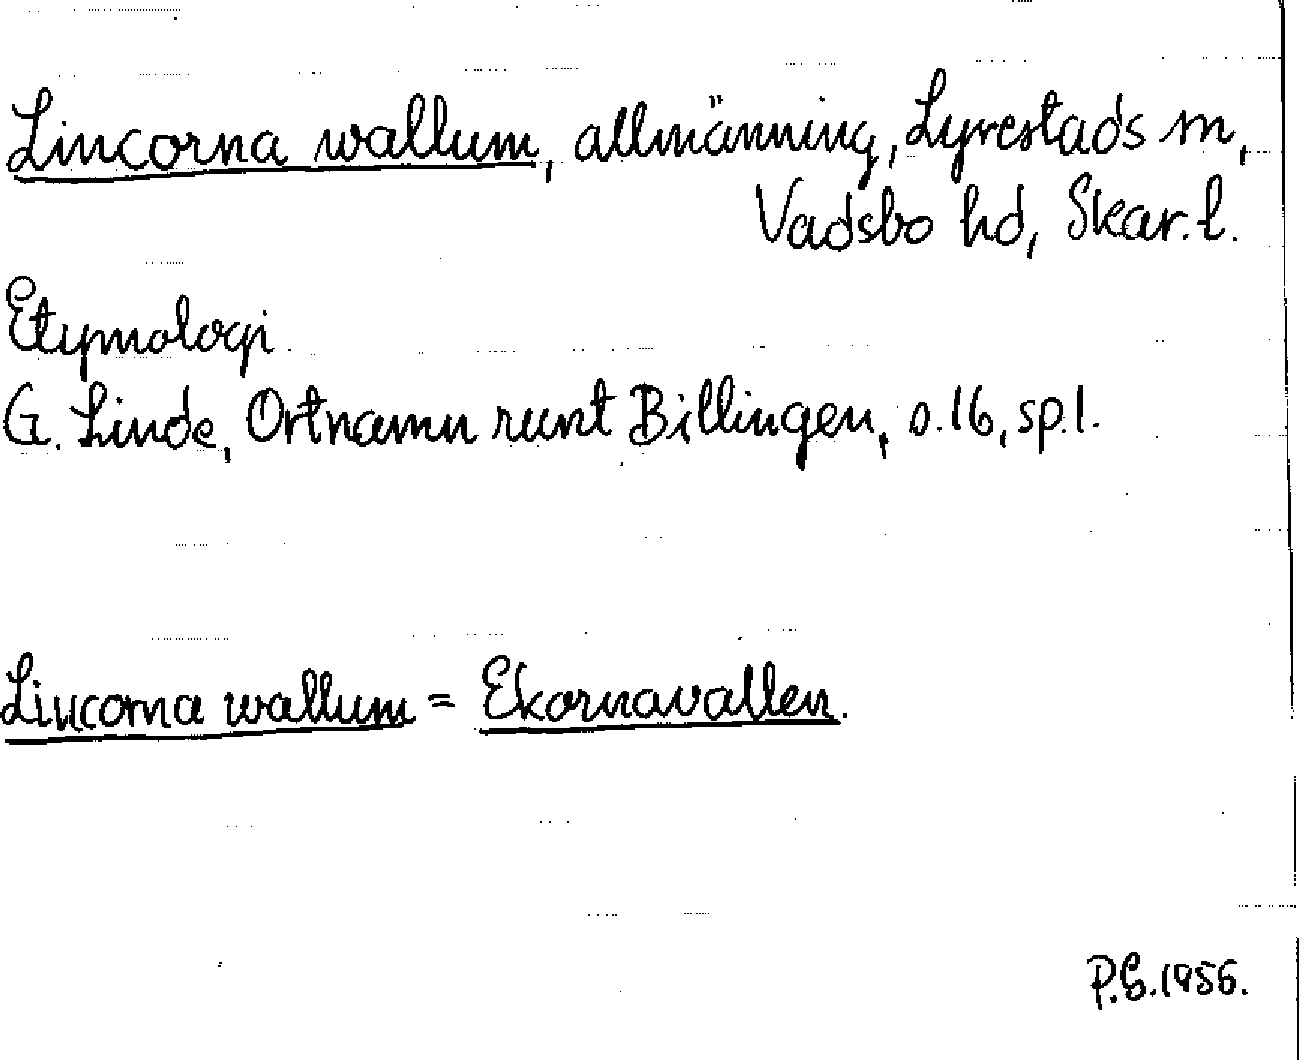 Lincorna wallum, allmänning, Lyrestads sn,
Vadsbo hd, Skar. l.
Etymologi
G. Linde, Ortnamn runt Billingen, s. 16, sp. 1.
Lincorna wallum = Ekornavallen.
P.G. 1956.